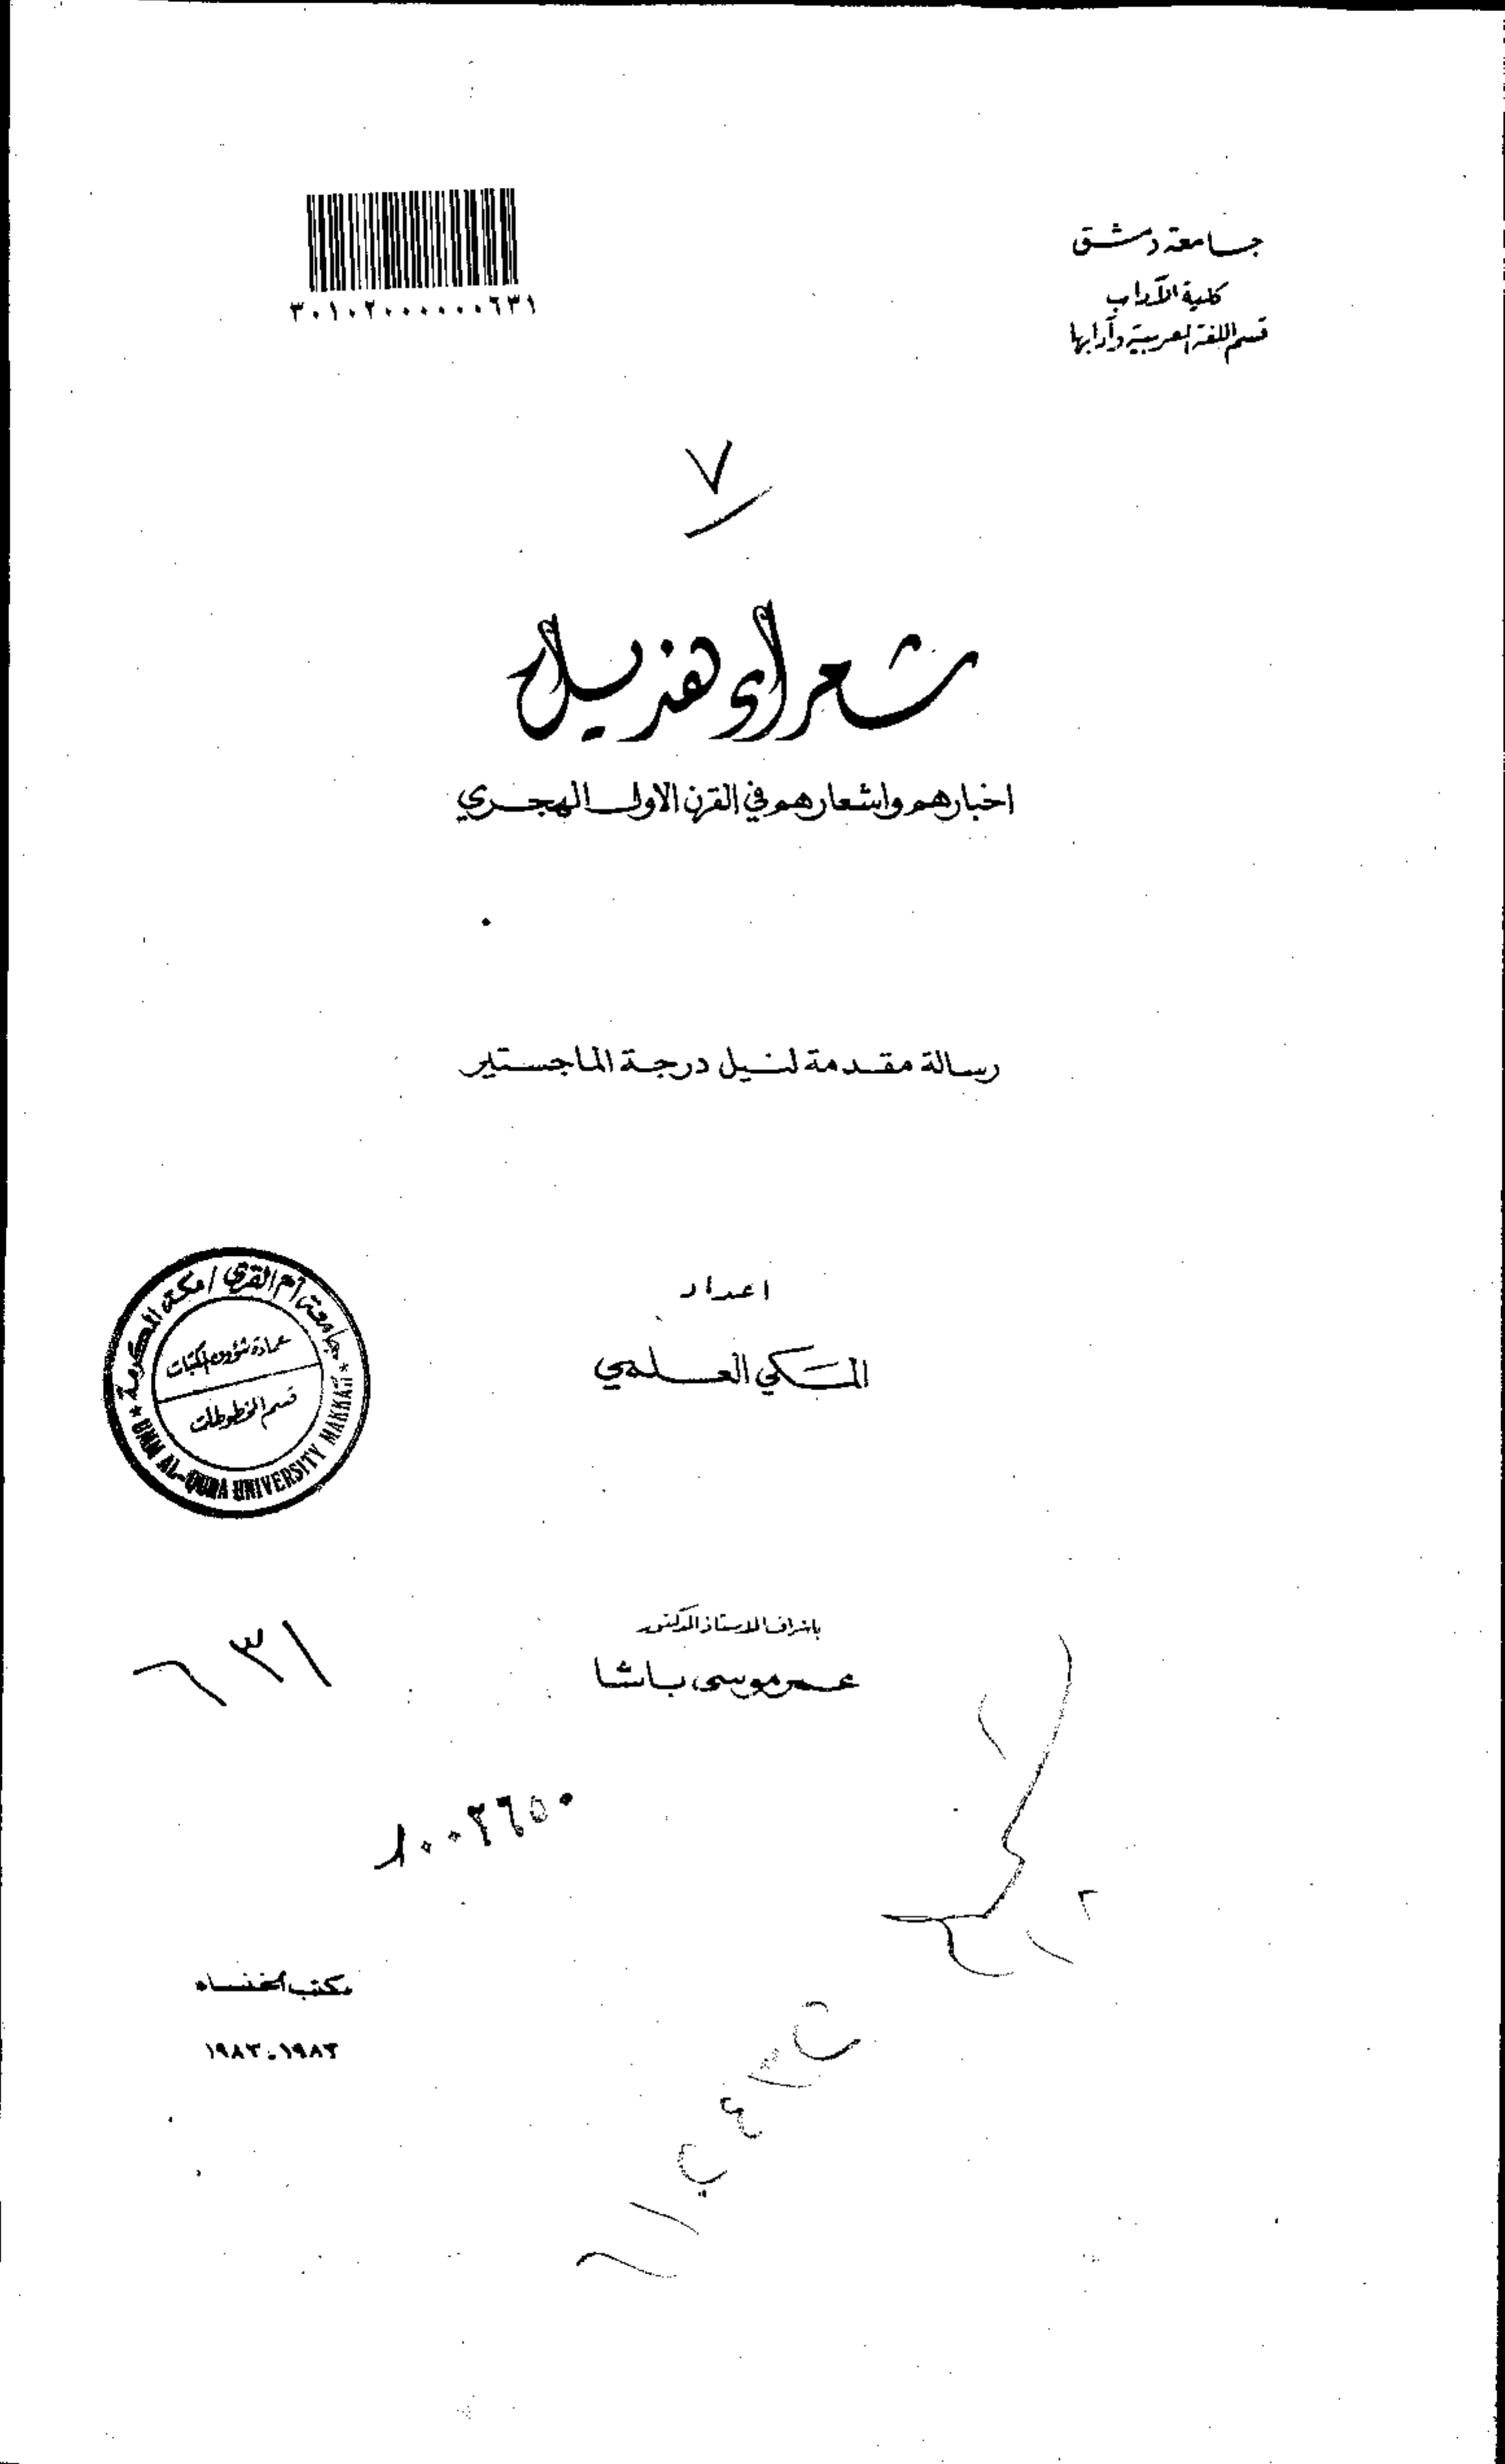 جامعة دمشق
كلية الآداب
قسم اللغة العربية وآدابها
٣٠١٠٢٠٠٠٠٠٠٦٣١
٧
شعراء هذيل
اخبارهم واشعارهم في القرن الاول الهجري
رسالة مقدمة لنيل درجة الماجستير
اعداد
المكي العلمي
جامعة أم القرى / مكة المكرمة
عمادة شؤون المكتبات
قسم المخطوطات
UMM AL-QURA UNIVERSITY MAKKAH
باشراف الاستاذ الدكتور
عمر موسى باشا
٦٣١
١٠٠٢٦٥٠
مكتب الخنساء
١٩٨٢-١٩٨٣